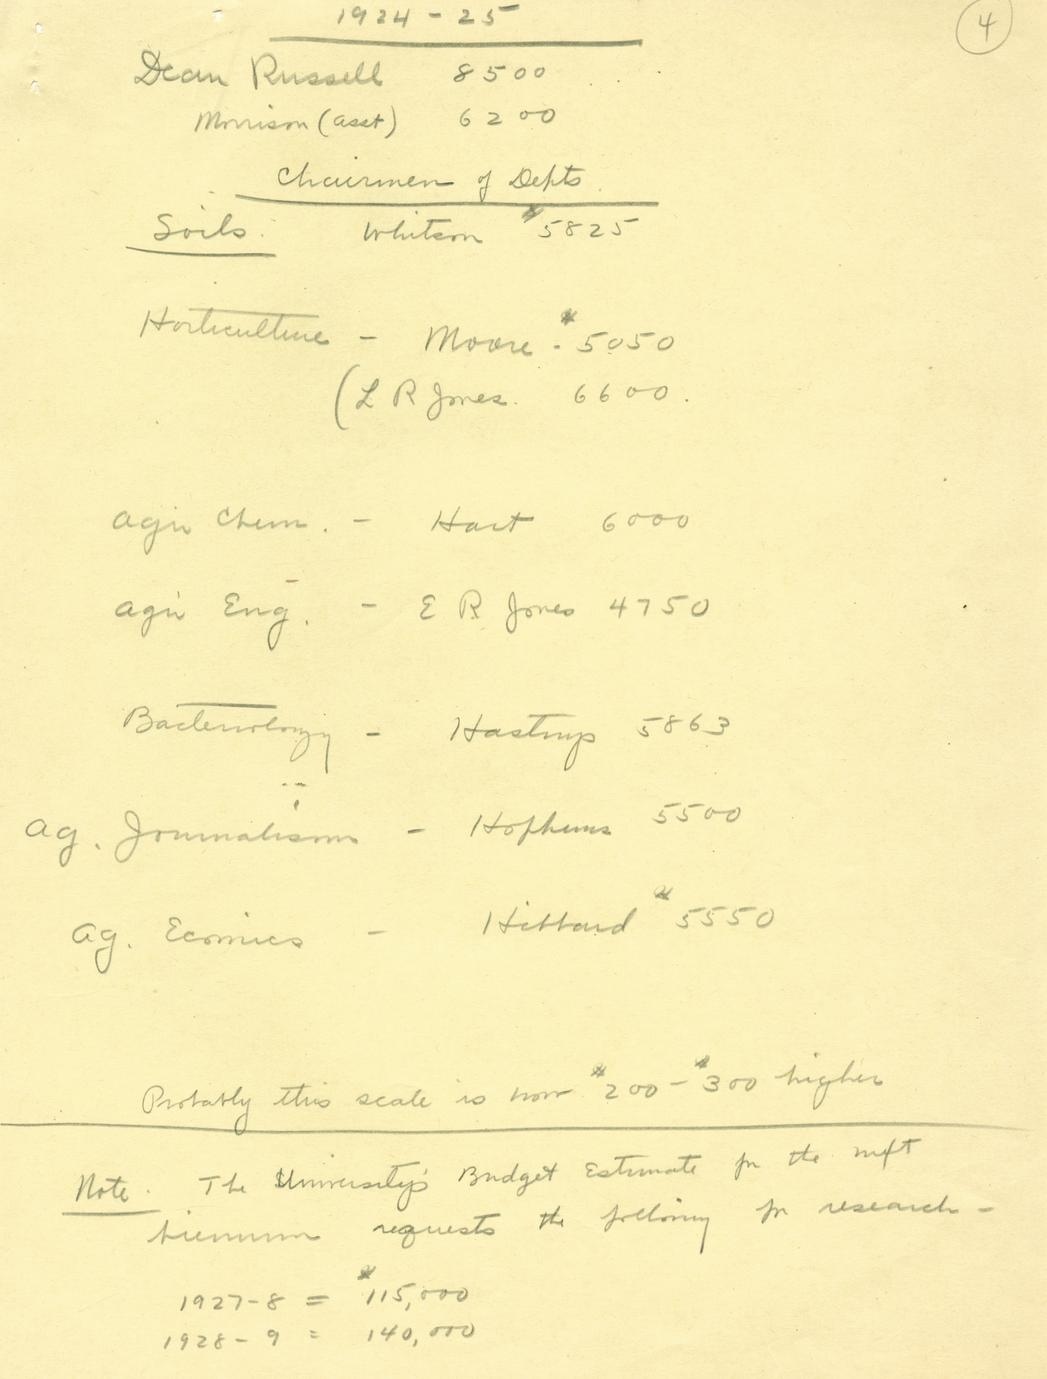 4
1924-25
Dean Russell 8500
Morrison (asst) 6200
Chairmen of Depts.
Soils. Whitson $5825
Horticulture - Moore - $5050
(L R Jones. 6600.
Agri Chem. - Hart 6000
Agri Eng. - E R Jones 4750
Bacteriology - Hastings 5863
Ag. Journalism - Hopkins 5500
Ag. Ecomics - Hibbard $5550
Probably this scale is now $200 - $300 higher
Note. The University's Budget Estimate for the next
biennium requests the following for research -
1927-8 = $115,000
1928-9 = 140,000